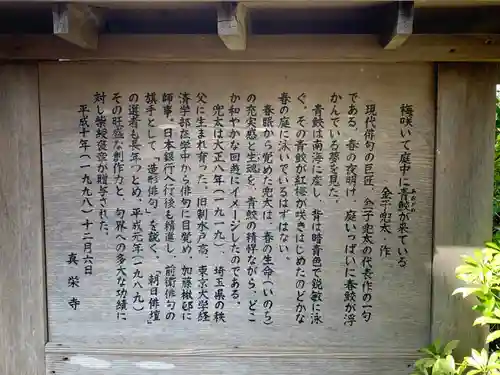 梅咲いて庭中に青鮫が来ている
あおざめ
金子兜太・作
現代俳句の巨匠、金子兜太の代表作の一句
である。春の夜明け、庭いっぱいに青鮫が浮
かんでいる夢を見た。
青鮫は南海に産し、背は暗青色で鋭敏に泳
ぐ。その青鮫が紅梅が咲きはじめたのどかな
春の庭に泳いでいるはずはない。
春眠から覚めた兜太は、春の生命（いのち）
の充実感と生魂を、青鮫の精悍ながら、どこ
か和やかな回遊にイメージしたのである。
兜太は大正八年（一九一九）、埼玉県の秩
父に生まれ育った。旧制水戸高、東京大学経
済学部在学中から俳句に目覚め、加藤楸邨に
師事。日本銀行へ行後も精進し、前衛俳句の
旗手として、「造形俳句」を説く。「朝日俳壇」
の選者も長年つとめ、平成元年（一九八九）
その旺盛な創作力と、句界への多大な功績に
対し紫綬褒章が贈与された。
平成十年（一九九八）十二月六日
真栄寺